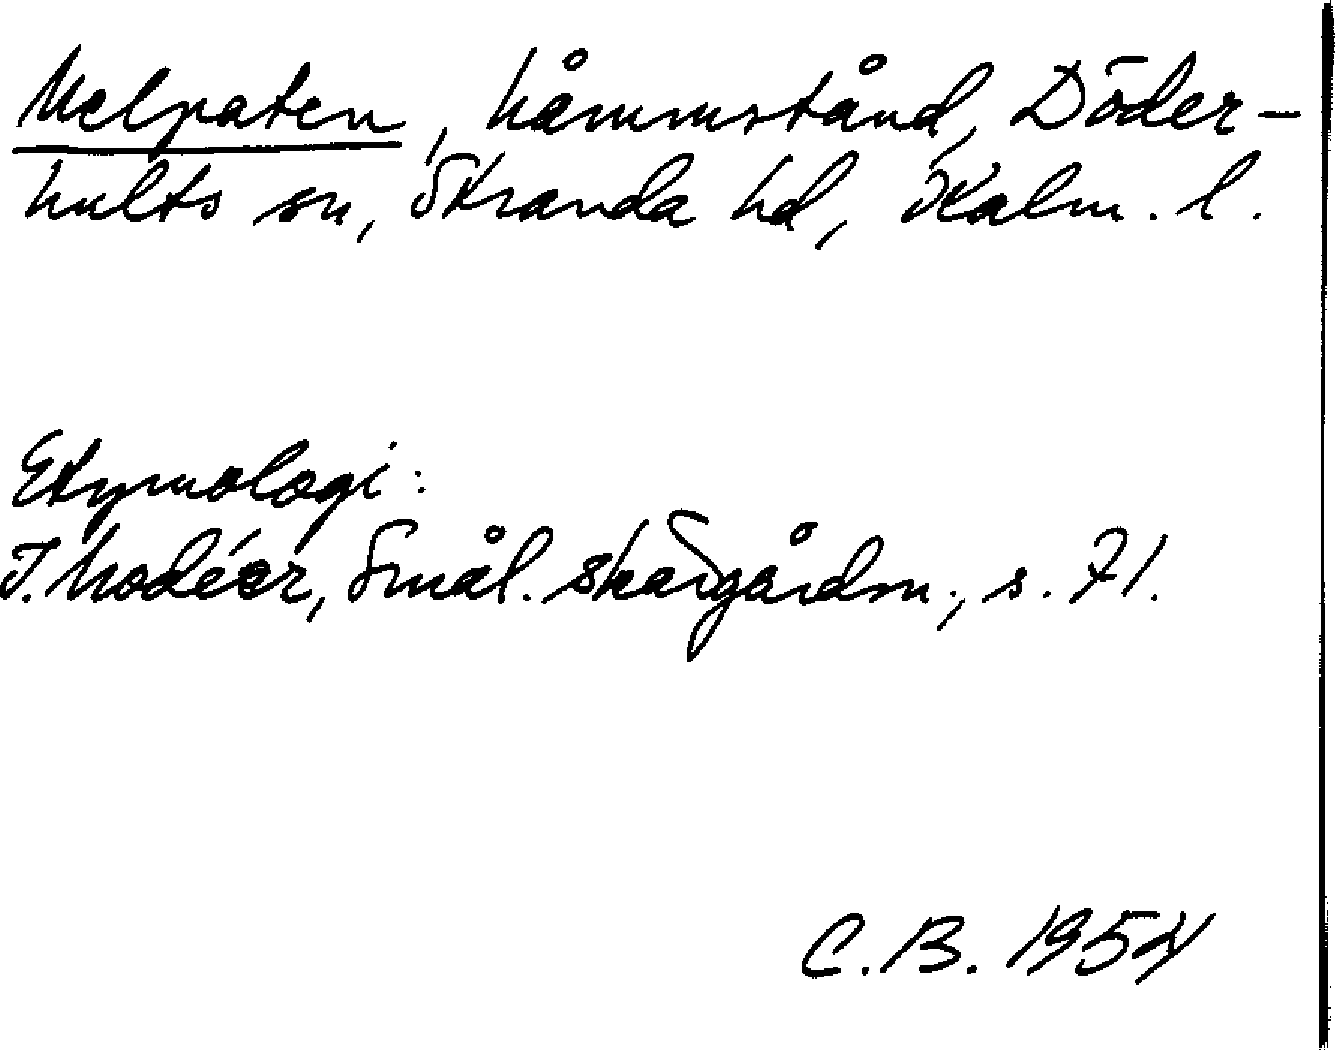 Melpaten, håmmstånd, Döder-
hults sn, Stranda hd, Kalm. l.
Etymologi:
I. Modéer, Smål. skärgårdsn., s. 71.
C.B. 1954